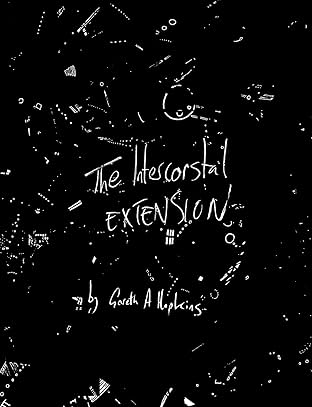 The Intercorstal
EXTENSION
by Gareth A Hopkins